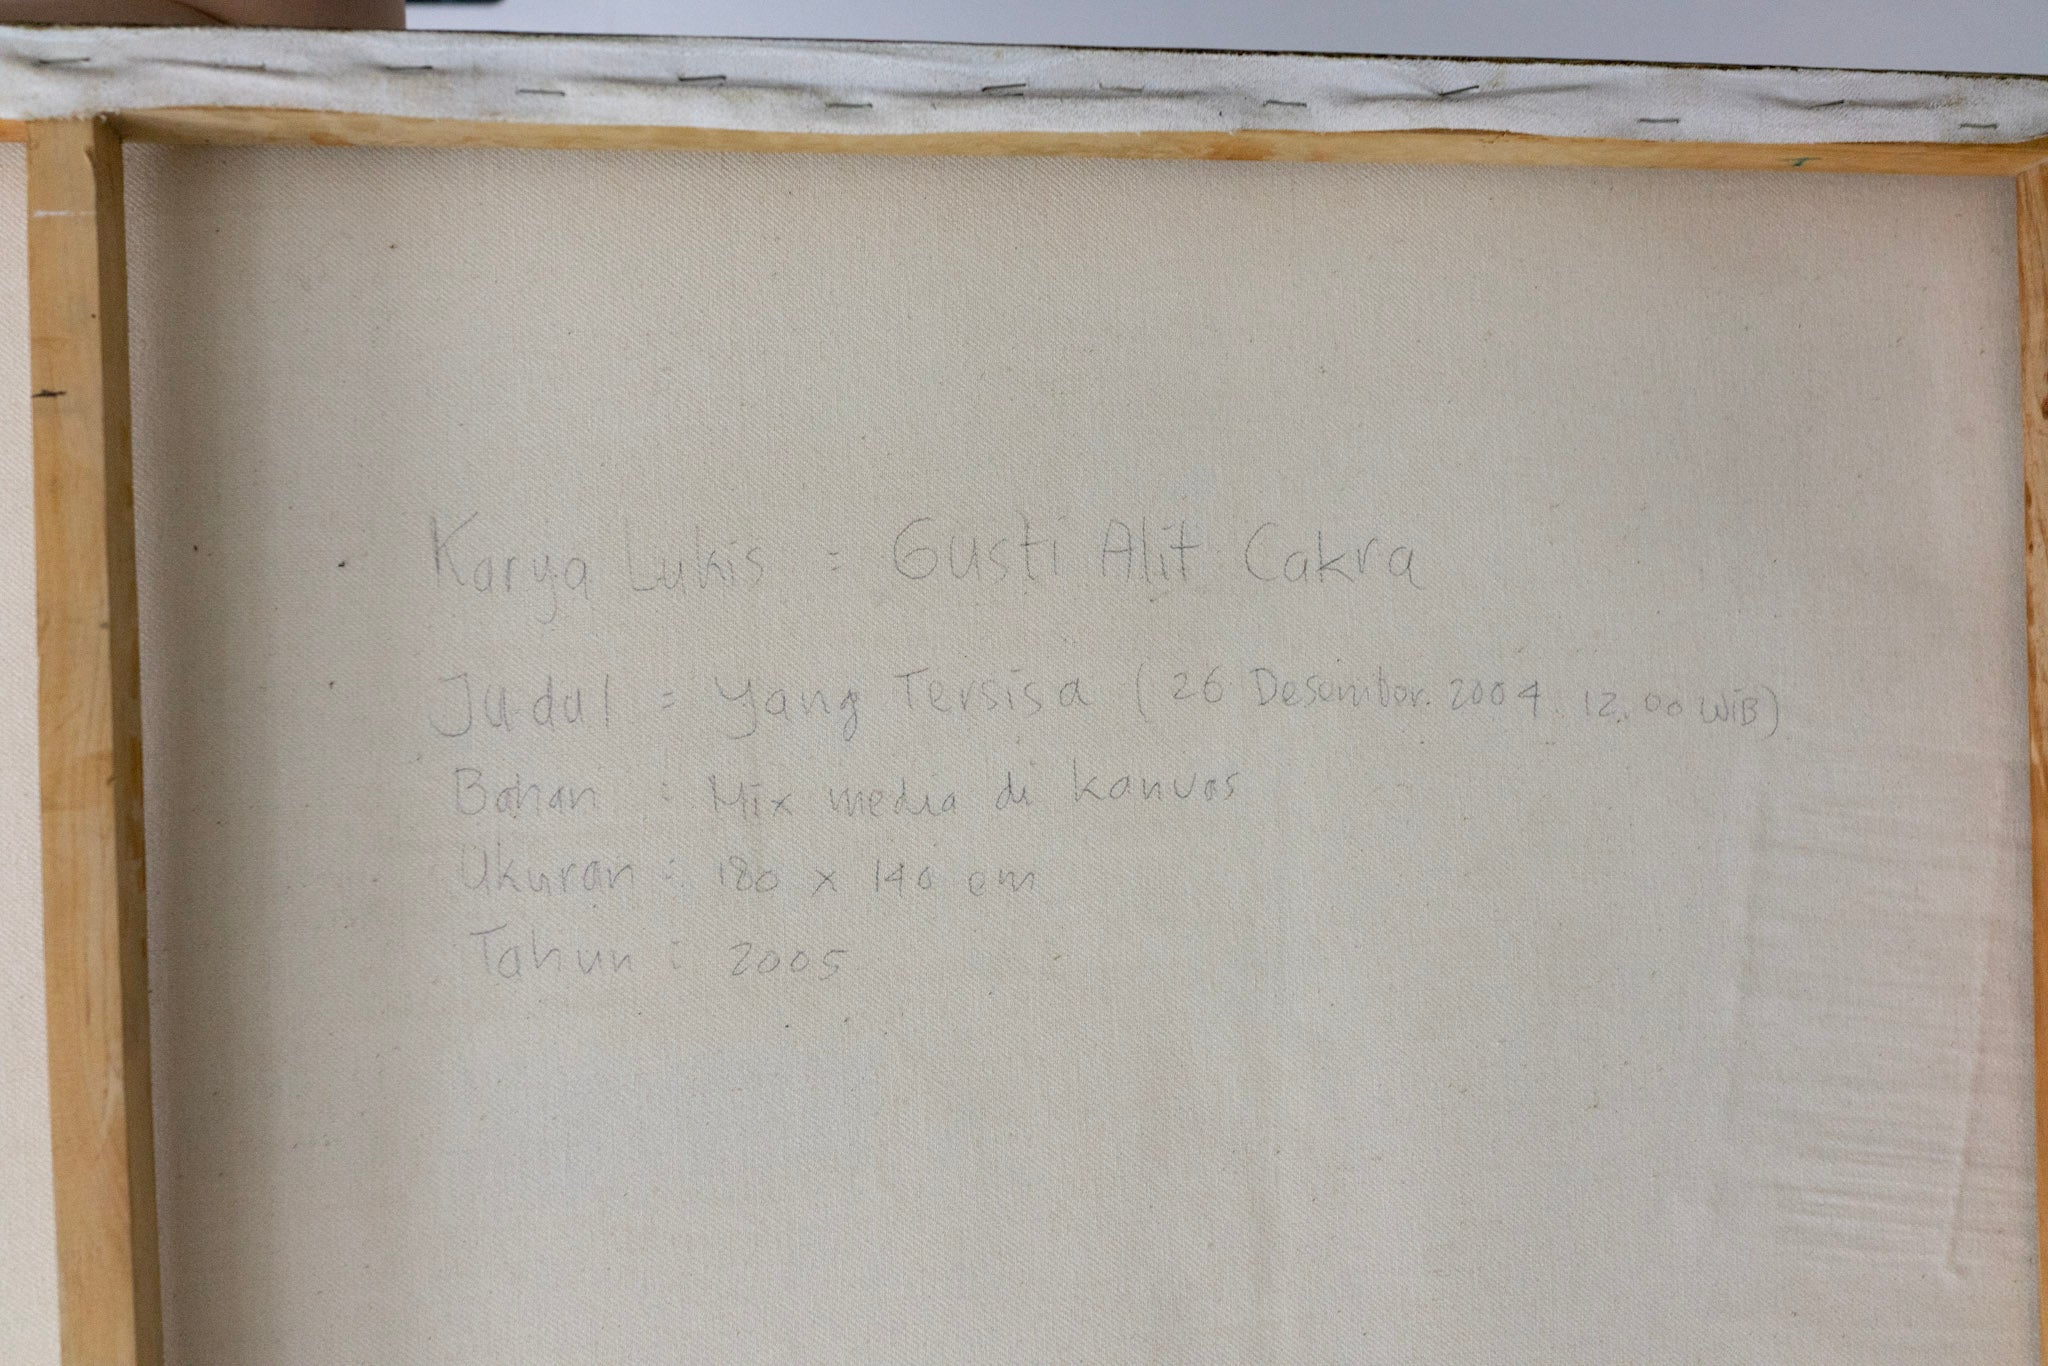 Karya Lukis = Gusti Alit Cakra
Judul = Yang Tersisa (26 Desember. 2004. 12.00 WIB)
Bahan : Mix media di kanvas
Ukuran : 180 x 140 cm
Tahun : 2005